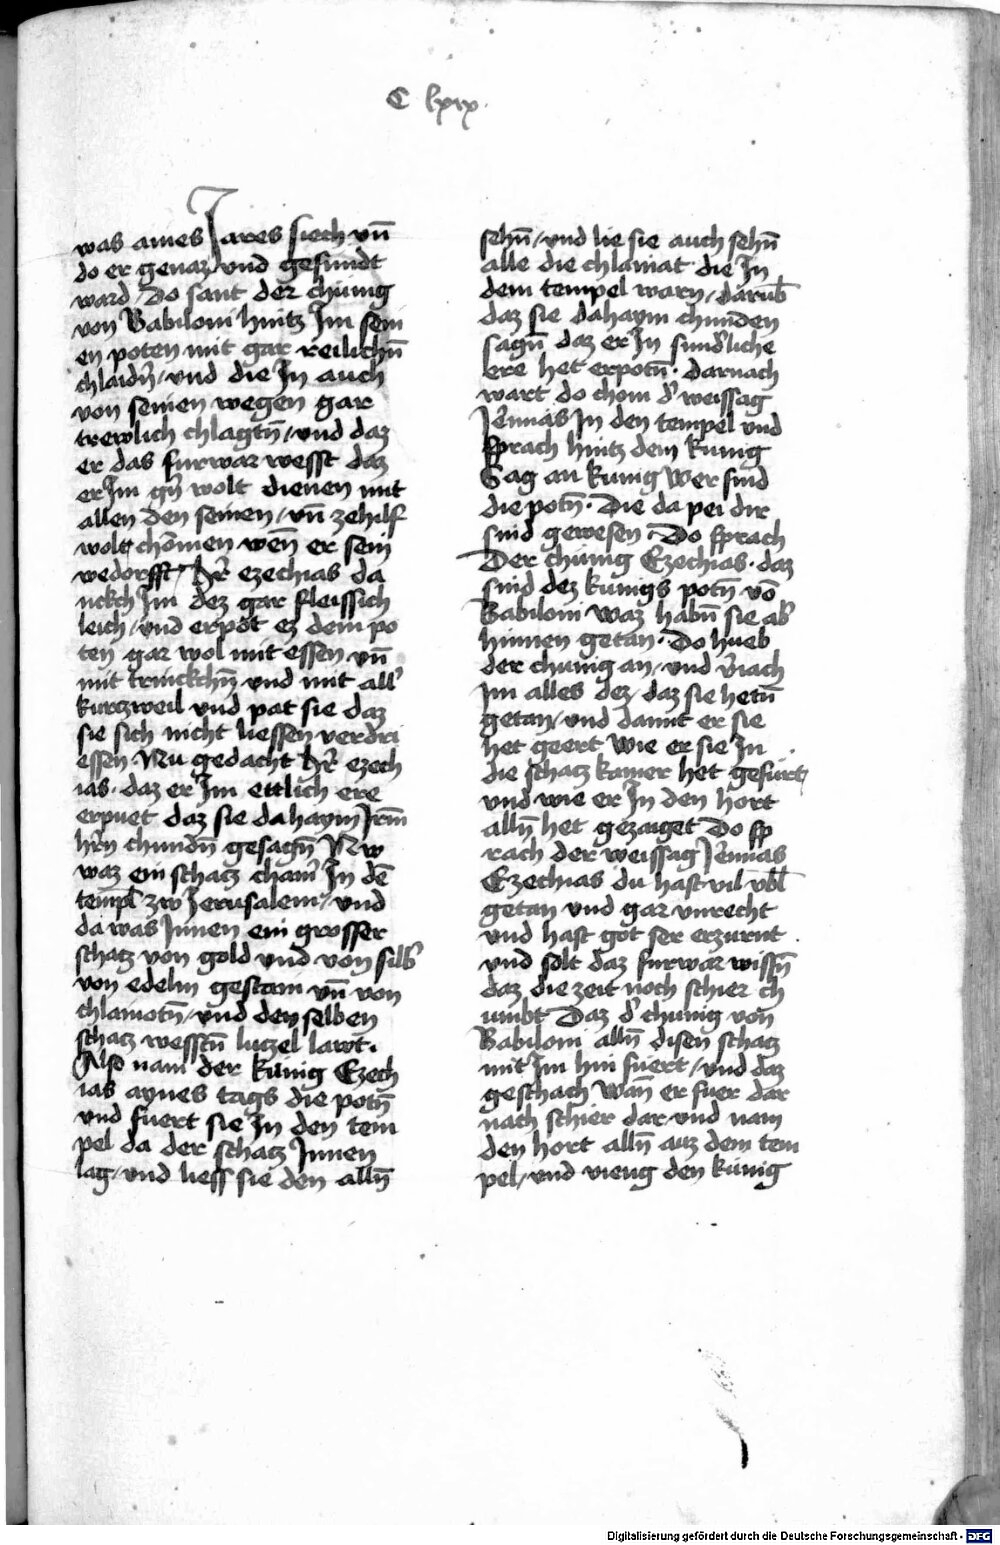 C lxxx.
was aines Jares siech vn̄
do er genaz / vnd gesundt
ward / Do sant der chünig
von Babiloni hintz Im sein
en poten mit gar reilichn̄
chlaidn̄ / vnd die In auch
von seinen wegen gar
trewlich chlagtn̄ / vnd daz
er das furwar wesst daz
er Im gn̄ wolt dienen mit
allen den seinen / vn̄ zehilf
wolt chömen wen̄ er sein
wedorfft / Hr̄ ezechias da
nckch Im dez gar fleissich
leich / vnd erpöt ez dem po
ten gar wol mit essen vn̄
mit trinckchn̄ vnd mit all'
kurtzweil vnd pat sie daz
sie sich nicht liessen verdri
essen. Nu gedacht Hr̄ ezech
ias. daz er Im ettlich ere
erputet daz sie dahaym Irm̄
hr̄n chundn̄ gesagn̄ Nw
waz ein schatz cham' In dē
templ̄ zw Jerusalem / vnd
da was Innen ein grosser
schatz von gold vnd von silb'
von edelm gestain vn̄ von
chlainotn̄ / vnd den selben
schatz wesstn̄ lutzel lawt.
Also nam der künig Ezech
ias aynes tags die potn̄
vnd fuert sie In den tem
pel da der schatz Innen
lag / vnd liess sie den alln̄
sehn̄ / vnd lie sie auch sehn̄
alle die chlainat die In
dem tempel warn / darub̄
daz sie dahaym chunden
sagn̄ daz er In sund'liche
ere het erpotn̄. darnach
wart do chom d' weissag
Jeremias In den tempel vnd
sprach hintz dem künig
Sag an künig wer sind
die potn̄. Die da pei dir
sind gewesen. Do sprach
Der chünig Ezechias. daz
sind dez künigs potn̄ vō
Babiloni waz habn̄ sie ab'
hinnen getan. Do hueb
der chünig an / vnd v'iach
Im alles dez / daz sie hetn̄
getan / vnd damit er sie
het geert wie er sie In
die schatz kamer het gefürt /
vnd wie er In den hort
alln̄ het gezaiget Do sp
rach der weissag Jeremias
Ezechias du hast vil vbl̄
getan vnd gar vnrecht
vnd hast got ser erzurnt.
vnd solt daz furwar wissn̄
daz die zeit noch schier ch
umbt Daz d' chunig von
Babiloni alln̄ disen schatz
mit Im hin fuert / vnd daz
geschach wan̄ er fuer dar
nach schier dar vnd nam
den hort alln̄ auz dem tem
pel / vnd vieng den künig
Digitalisierung gefördert durch die Deutsche Forschungsgemeinschaft - DFG